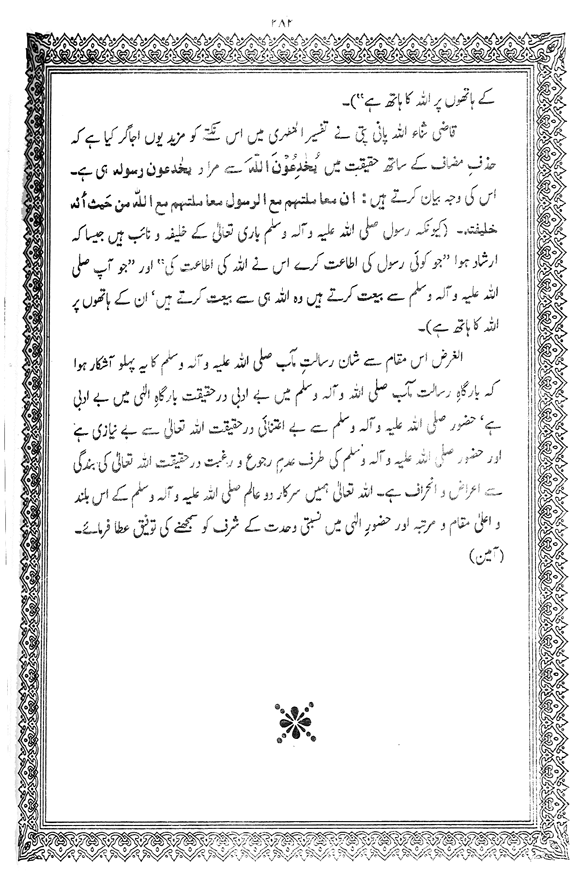 ۲۸۲
کے ہاتھوں پر اللہ کا ہاتھ ہے“)۔
قاضی ثناء اللہ پانی پتی نے تفسیر المظہری میں اس نکتے کو مزید یوں اجاگر کیا ہے کہ
حذفِ مضاف کے ساتھ حقیقت میں یُخٰدِعُوْنَ اللّٰہَ سے مراد یخٰدعون رسولہ ہی ہے۔
اس کی وجہ بیان کرتے ہیں: ان معاملتہم مع الرسول معاملتہم مع اللّٰہ من حیث أنہ
خلیفتہ۔ (کیونکہ رسول صلی اللہ علیہ و آلہ وسلم باری تعالیٰ کے خلیفہ و نائب ہیں جیسا کہ
ارشاد ہوا ”جو کوئی رسول کی اطاعت کرے اس نے اللہ کی اطاعت کی“ اور ”جو آپ صلی
اللہ علیہ و آلہ وسلم سے بیعت کرتے ہیں وہ اللہ ہی سے بیعت کرتے ہیں‘ ان کے ہاتھوں پر
اللہ کا ہاتھ ہے)۔
الغرض اس مقام سے شان رسالت مآب صلی اللہ علیہ و آلہ وسلم کا یہ پہلو آشکار ہوا
کہ بارگاہِ رسالت مآب صلی اللہ علیہ و آلہ وسلم میں بے ادبی درحقیقت بارگاہِ الٰہی میں بے ادبی
ہے‘ حضور صلی اللہ علیہ و آلہ وسلم سے بے اعتنائی درحقیقت اللہ تعالیٰ سے بے نیازی ہے
اور حضور صلی اللہ علیہ و آلہ وسلم کی طرف عدمِ رجوع و رغبت درحقیقت اللہ تعالیٰ کی بندگی
سے اعراض و انحراف ہے۔ اللہ تعالیٰ ہمیں سرکار دو عالم صلی اللہ علیہ و آلہ وسلم کے اس بلند
و اعلیٰ مقام و مرتبہ اور حضورِ الٰہی میں نسبتی وحدت کے شرف کو سمجھنے کی توفیق عطا فرمائے۔
(آمین)